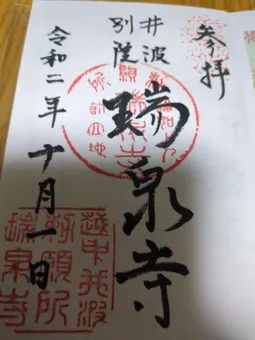 参拝
井波
別院
瑞泉寺
令和二年十月一日
越中井波
勅願所
瑞泉寺